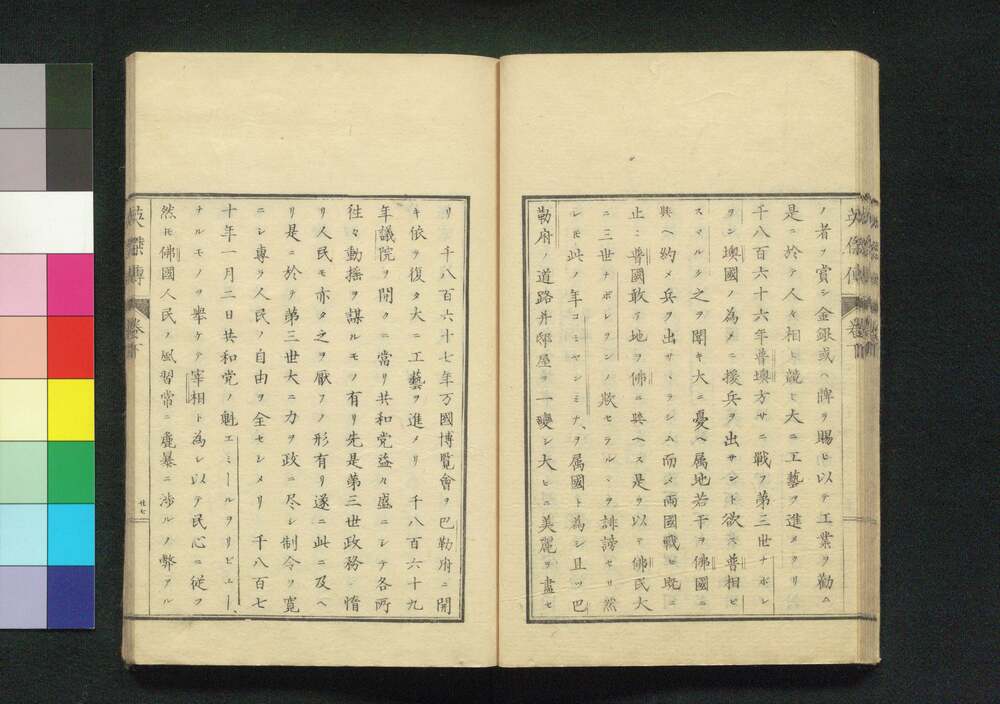 ノ者ヲ賞シ金銀或ハ牌ヲ賜ヒ以テ工業ヲ勸ム
是ニ於テ人々相ヒ競ヒ大ニ工藝ヲ進メタリ
千八百六十六年普墺方サニ戰フ第三世ナポレ
ヲン墺國ノ為メニ援兵ヲ出サント欲ス普相ビ
スマルク之ヲ聞キ大ニ憂ヘ属地若干ヲ佛國ニ
與ヘ約メ兵ヲ出サヽラシム而メ兩國戰ヒ既ニ
止ニ普國敢テ地ヲ佛ニ與ヘス是ヲ以テ佛民大
ニ三世ナポレヲンノ欺セラルヽヲ誹謗セリ然
レモ此ノ年コーミヤンシミナヲ属國ト為シ且ツ巴
勒府ノ道路并邸屋ヲ一變シ大ヒニ美麗ヲ盡セ
英傑傳 卷下
リ 千八百六十七年万國博覧會ヲ巴勒府ニ開
キ依テ復タ大ニ工藝ヲ進メリ 千八百六十九
年議院ヲ開クニ當リ共和党益々盛ニシテ各所
往々動揺ヲ謀ルモノ有リ先是第三世政務ニ惰
リ人民モ亦タ之ヲ厭フノ形有リ遂ニ此ニ及ヘ
リ是ニ於テ第三世大ニ力ヲ政ニ尽シ制令ヲ寛
ニシ専ラ人民ノ自由ヲ全セシメリ 千八百七
十年一月二日共和党ノ魁エミールヲリビエー、
ナルモノヲ擧ケテ宰相ト為シ以テ民心ニ従フ
然モ佛國人民ノ風習常ニ麁暴ニ渉ルノ弊アル
英傑傳 卷下 廿七